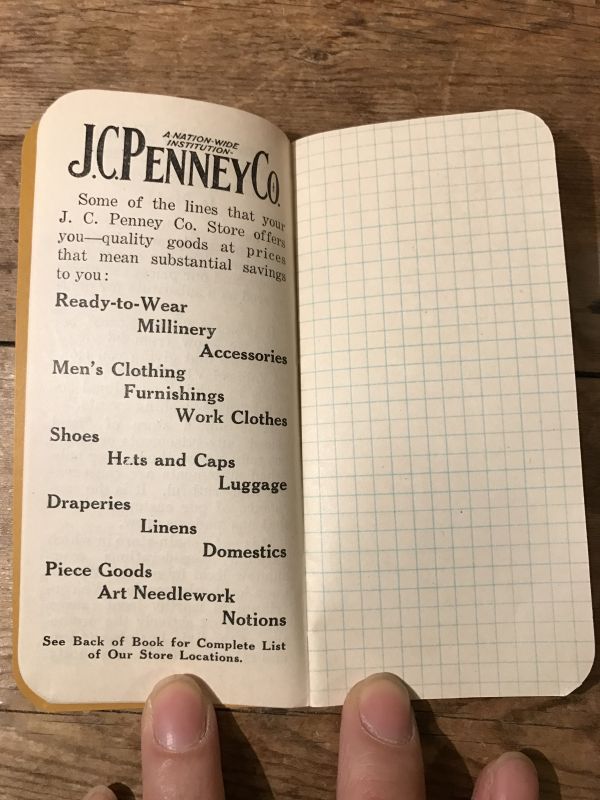 A NATION-WIDE
INSTITUTION-
J.C.PENNEY CO.
Some of the lines that your
J. C. Penney Co. Store offers
you—quality goods at prices
that mean substantial savings
to you:
Ready-to-Wear
Millinery
Accessories
Men's Clothing
Furnishings
Work Clothes
Shoes
Hats and Caps
Luggage
Draperies
Linens
Domestics
Piece Goods
Art Needlework
Notions
See Back of Book for Complete List
of Our Store Locations.